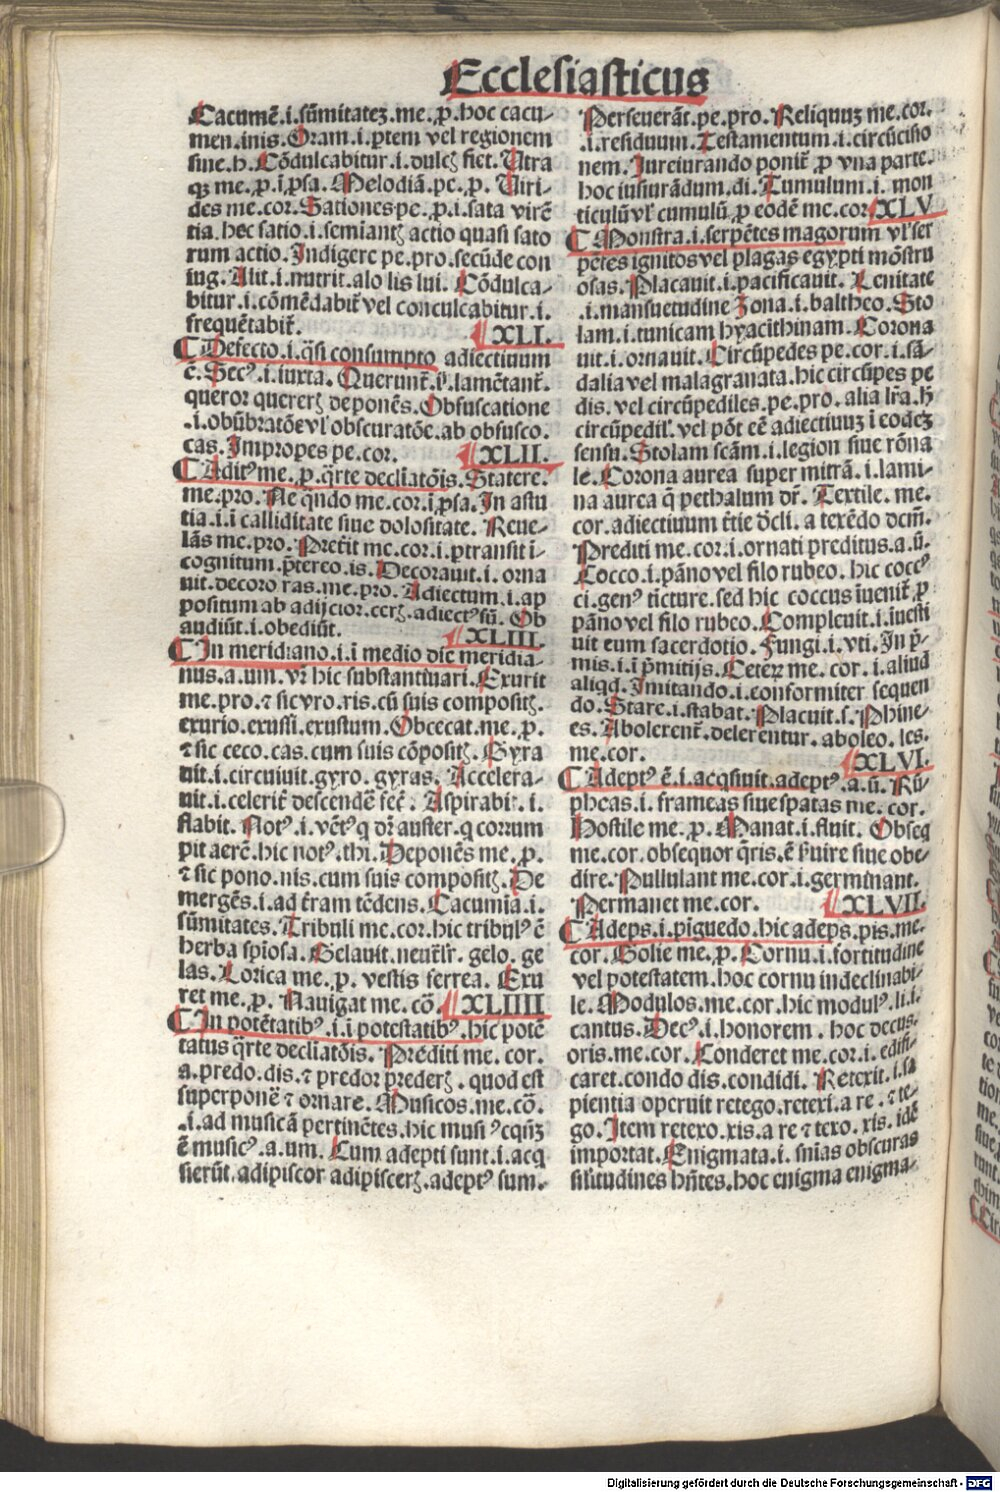 Ecclesiasticus
Cacumē.i.sūmitatez.me.p̱.hoc cacu-
men.inis.Oram.i.ptem vel regionem
sine.h.Cōdulcabitur.i.dulcꝫ fiet.Ultra
qꝫ me.p̱.i.p̱sa.Melodiā.pe.p̱.Uiri-
des me.cor.Sationes pe.p̱.i.sata virē
tia.hec satio.i.semiantꝫ actio quasi sato
rum actio.Indigere pe.pro.secūde con
iug.Alit.i.nutrit.alo lis lui.Cōdulca-
bitur.i.cōmēdabit̄ vel conculcabitur.i.
frequētabit̄. XLI.
Defecto.i.q̄si consumpto adiectiuum
ē.Secꝰ.i.iuxta.Querunt̄.i.lamētant̄.
queror quererꝫ deponēs.Obfuscatione
.i.obūbratōe vl' obscuratōe.ab obfusco.
cas.Impropes pe.cor. XLII.
Aditꝰ me.p̱.q̄rte declīatōis.Statere.
me.pro.Ne qn̄do me.cor.i.p̱sa.In astu
tia.i.i calliditate siue dolositate.Reue-
lās me.pro.Preterit me.cor.i.ptransit i-
cognitum.p̄tereo.is.Decorauit.i.orna
uit.decoro ras.me.pro.Adiectum.i.ap
positum ab adijcior.cerꝫ.adiectꝰ sū.Ob
audiūt.i.obediūt. XLIII.
In meridiano.i.i medio die meridia-
nus.a.um.vl' hic substantiuari.Exurit
me.pro.⁊ sic vro.ris.cū suis compositꝫ.
exurio.exussi.exustum.Obcecat.me.p̱.
⁊ sic ceco.cas.cum suis cōpositꝫ.Gyra
uit.i.circuiuit.gyro.gyras.Accelera-
uit.i.celerit̄ descendē fec̄.Aspirabit.i.
flabit.Notꝰ.i.vētꝰ q̄ dr̄ auster.q̄ corrum
pit aerē.hic notꝰ.thi.Deponēs me.p̱.
⁊ sic pono.nis.cum suis compositꝫ.De
mergēs.i.ad t̄ram tēdens.Cacumia.i.
sūmitates.Tribuli me.cor.hic tribulꝰ ē
herba spiosa.Gelauit.neutl'r.gelo.ge
las.Lorica me.p̱.vestis ferrea.Exu
ret me.p̱.Nauigat me.cō. XLIIII
In potētatibꝰ.i.i potestatibꝰ.hic potē
tatus q̄rte declīatōis.Prediti me.cor.
a.predo.dis.⁊ predor p̄rederꝫ.quod est
superponē ⁊ ornare.Musicos.me.cō.
.i.ad musicā pertinētes.hic musiꝰ
ē musicꝰ.a.um.Cum adepti sunt.i.acq
sierūt.adipiscor adipiscerꝫ.adeptꝰ sum.
Perseuerāt.pe.pro.Reliquuz me.cor.
.i.residuum.Testamentum.i.circūcisio
nem.Iureiurando ponit̄ p̱ vna parte.
hoc iusiurādum.di.Tumulum.i.mon
ticulū vl' cumulū p̱ eodē me.cor. XLV
Monstra.i.serpētes magorum vl' ser
pētes ignitos vel plagas egypti mōstru
osas.Placauit.i.pacificauit.Lenitate
.i.mansuetudine Zona.i.baltheo.Sto
lam.i.tunicam hyacithinam.Corona
uit.i.ornauit.Circūpedes pe.cor.i.sā-
dalia vel malagranata.hic circūpes pe
dis.vel circūpediles.pe.pro.alia lr̄a.h̄
circūpedil'.vel pōt eē adiectiuuz i eodez
sensu.Stolam scām.i.legion siue rōna
le.Corona aurea super mitrā.i.lami-
na aurea q̄ pethalum dr̄.Textile.me.
cor.adiectiuum t̄tie d̄cli.a texēdo dcm̄.
Prediti me.cor.i.ornati preditus.a.ū.
Cocco.i.pāno vel filo rubeo.hic coccꝰ
ci.genꝰ ticture.sed hic coccus iuenit̄ p̱
pāno vel filo rubeo.Compleuit.i.iuesti
uit eum sacerdotio.Fungi.i.vti.In p̄-
mis.i.i p̄mitijs.Ceterꝫ me.cor.i.aliud
aliqd.Imitando.i.conformiter sequen
do.Stare.i.stabat.Placuit.s.Phine-
es.Abolerent̄.delerentur.aboleo.les.
me.cor. XLVI.
Adeptꝰ ē.i.acq̄siuit.adeptꝰ.a.ū.Rū-
pheas.i.frameas siue spatas me.cor.
Hostile me.p̱.Manat.i.fluit.Obseq
me.cor.obsequor q̄ris.ē s̄uire siue obe-
dire.Pullulant me.cor.i.germinant.
Permanet me.cor. XLVII.
Adeps.i.piguedo.hic adeps.pis.me.
cor.Golie me.p̱.Cornu.i.fortitudine
vel potestatem.hoc cornu indeclinabi-
le.Modulos.me.cor.hic modulꝰ.li.i.
cantus.Decꝰ.i.honorem.hoc decus.
oris.me.cor.Conderet me.cor.i.edifi-
caret.condo dis.condidi.Retexit.i.sa
pientia operuit retego.retexi.a re.⁊ te-
go.Item retexo.xis.a re ⁊ texo.xis.idē
importat.Enigmata.i.sn̄ias obscuras
silitudines hn̄tes.hoc enigma enigma-
Digitalisierung gefördert durch die Deutsche Forschungsgemeinschaft - DFG